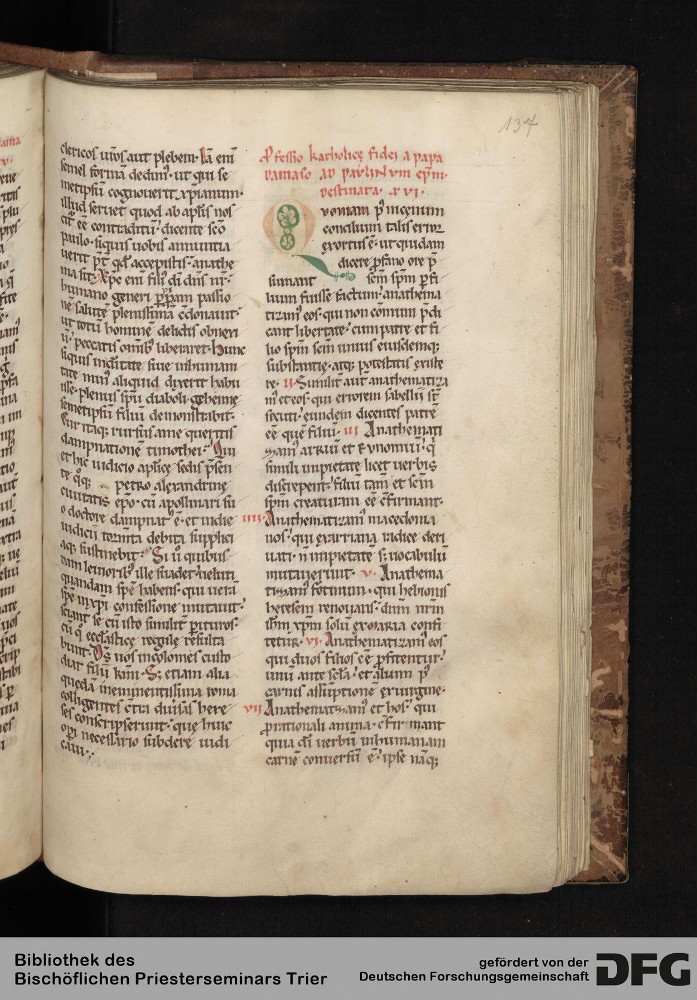 137
clericos uros aut plebem. Iā eni
semel formā dedim᷒ ut qui se
metipsū cognouerit xpianum.
illud seruet quod ab aplis nos
cit ēē contraditū dicente sco
paulo. siquis uobis annuntia
uerit pt qd accepistis. anathe
ma sit. xpc eni fili᷒ di dns nr.
humano generi ppam passio
ne salutē plenissimā cdonauit.
ut totū hominē delictis obnexi
ū peccatis omib᷒ liberaret. hunc
siquis
tate min᷒ aliquid dixerit habu
isse. plenus spu diaboli. gehenne
semetipsū filiū demonstrabit.
Cur itaq; rursus a me queritis
dampnationē timothei. Qui
et hic iudicio aplice sedis psen
te q̄q; petro alexandrine
ciuitatis epo. cū apollinari su
o doctore dampnat᷒ ē. et in die
iudicii tormta debita supplici
aq; sustinebit. Si ū quibus
dam leuiorib᷒ ille suadet ueluti
quandam spē habens. qui uerā
spē in xpi confessione mutauit.
cū q̄ ecclesiastice regule
bunt. Ds uos incolomes custo
diat filii kmi. S; etiam alia
quedā in eminentissima roma
colligentes ctra diuersas here
ses conscripserunt. que huic
opi necessario subdere iudi
caui.
Pfessio katholice fidei a papa
damaso ad paulinum epm.
destinata. xvi.
Quoniam p᷒ nicenum
concilium talis error
exortus ē. ut quidam
dicere pfano ore p
sumant scm spm p fi
lium fuisse factum. anathema
tizam᷒ eos. qui non omnium pdi
cant libertate. cum patre et fi
lio spm scm unius eiusdemq;
substantie. atq; potestatis existe
re. II. Similit aut anathematiza
m᷒ et eos. qui errorem sabellii st
secuti. eundem dicentes patrē
ēē quē filiū. III Anathemati
zam᷒ arrium et eunomiū. q̄
simili impietate licet uerbis
discrepent. filiū tam et scm
spm creaturam ēē cfirmant.
IIII. Anathematizam᷒ macedonia
nos. qui ex arriana radice deri
uati. n impietatē s; uocabulū
mutauerunt. V. Anathema
tizam᷒ fotinum. qui hebionis
heresem renouans. dnm nrm
ihm xpm solū ex maria confi
tetur. VI. Anathematizam᷒ eos
qui duos filios ēē pfitentur.
unū ante scla. et alium p᷒
carnis assūptione ex uirgine.
VII Anathematizam᷒ et hos. qui
p rationali anima cfirmant
quia di uerbū in humanam
carnē conuersū ē. ipse nāq;
Bibliothek des
Bischöflichen Priesterseminars Trier
gefördert von der
Deutschen Forschungsgemeinschaft
DFG